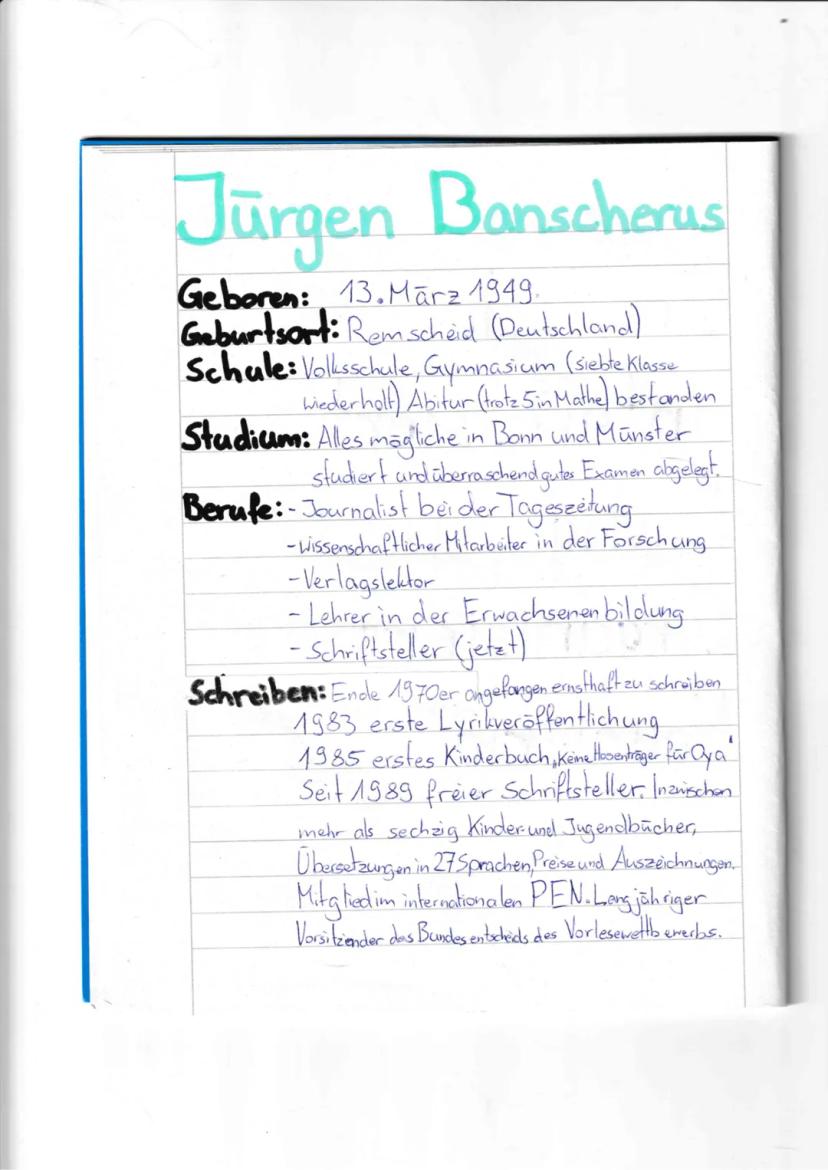 Jürgen Banscherus
Geboren: 13. März 1949.
Geburtsort: Remscheid (Deutschland)
Schule: Volksschule, Gymnasium (siebte Klasse
wiederholt) Abitur (trotz 5 in Mathe) bestanden
Studium: Alles mögliche in Bonn und Münster
studiert und überraschend gutes Examen abgelegt.
Berufe: - Journalist bei der Tageszeitung
- wissenschaftlicher Mitarbeiter in der Forschung
- Verlagslektor
- Lehrer in der Erwachsenenbildung
- Schriftsteller (jetzt)
Schreiben: Ende 1970er angefangen ernsthaft zu schreiben
1983 erste Lyrikveröffentlichung
1985 erstes Kinderbuch „Keine Hosenträger für Oya"
Seit 1989 freier Schriftsteller. Inzwischen
mehr als sechzig Kinder- und Jugendbücher,
Übersetzungen in 27 Sprachen, Preise und Auszeichnungen.
Mitglied im internationalen PEN. Langjähriger
Vorsitzender des Bundesentscheids des Vorlesewettbewerbs.